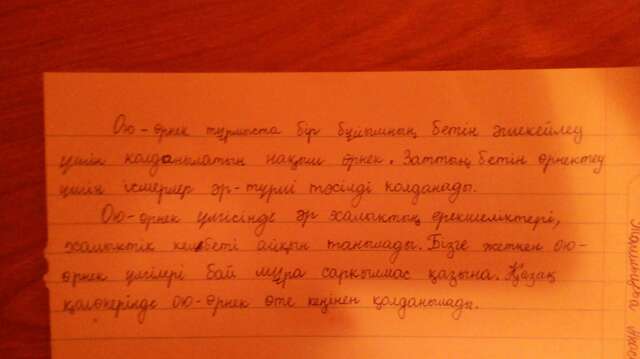 Ою-өрнек тұрмыста бір бұйымның бетін әшекейлеу
үшін қолданылатын нақыш өрнек. Заттың бетін өрнектеу
үшін ісмерлер әр-түрлі тәсілді қолданады.
Ою-өрнек үлгісінде әр халықтың ерекшеліктері,
халықтік келбеті айқын танылады. Бізге жеткен ою-
өрнек үлгілері бай мұра сарқылмас қазына. Қазақ
қолөнерінде ою-өрнек өте кеңінен қолданылады.